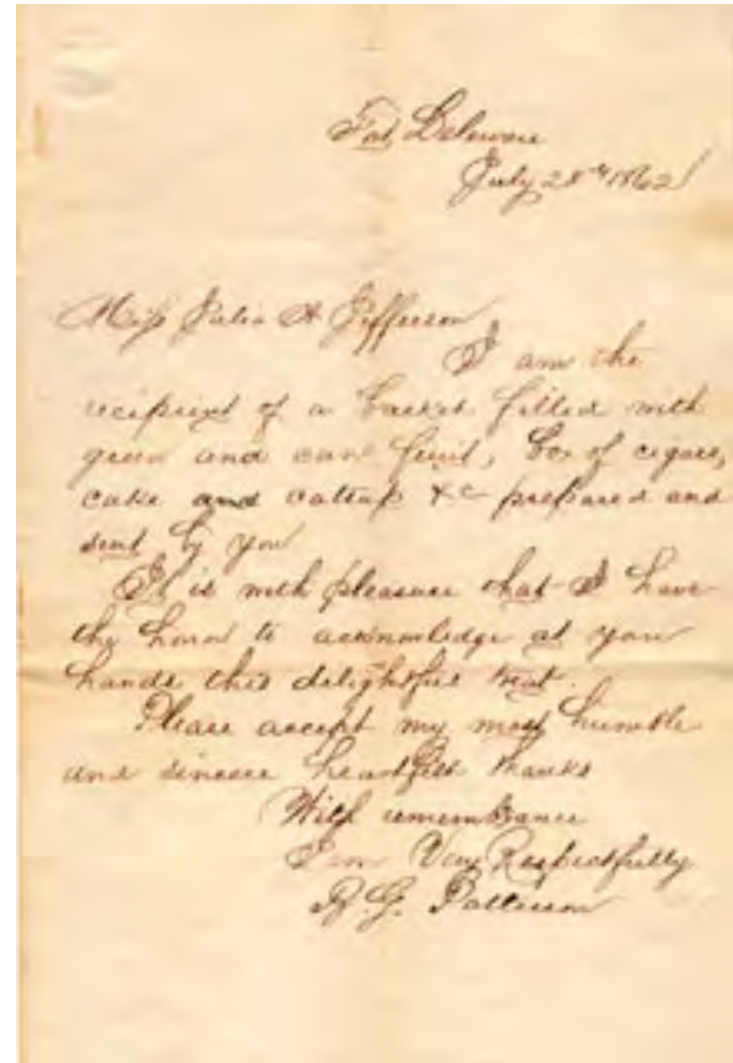 Fort Delaware
July 28th 1862
Miss Julia A Jefferson
I am the
recipient of a basket filled with
green and cand fruit, box of cigars,
cake and catsup &c prepared and
sent by you
It is with pleasure that I have
the honor to acknowledge at your
hands this delightful treat.
Please accept my most humble
and sincere heartfelt thanks
With remembrance
I am Very Respectfully
G. Patterson